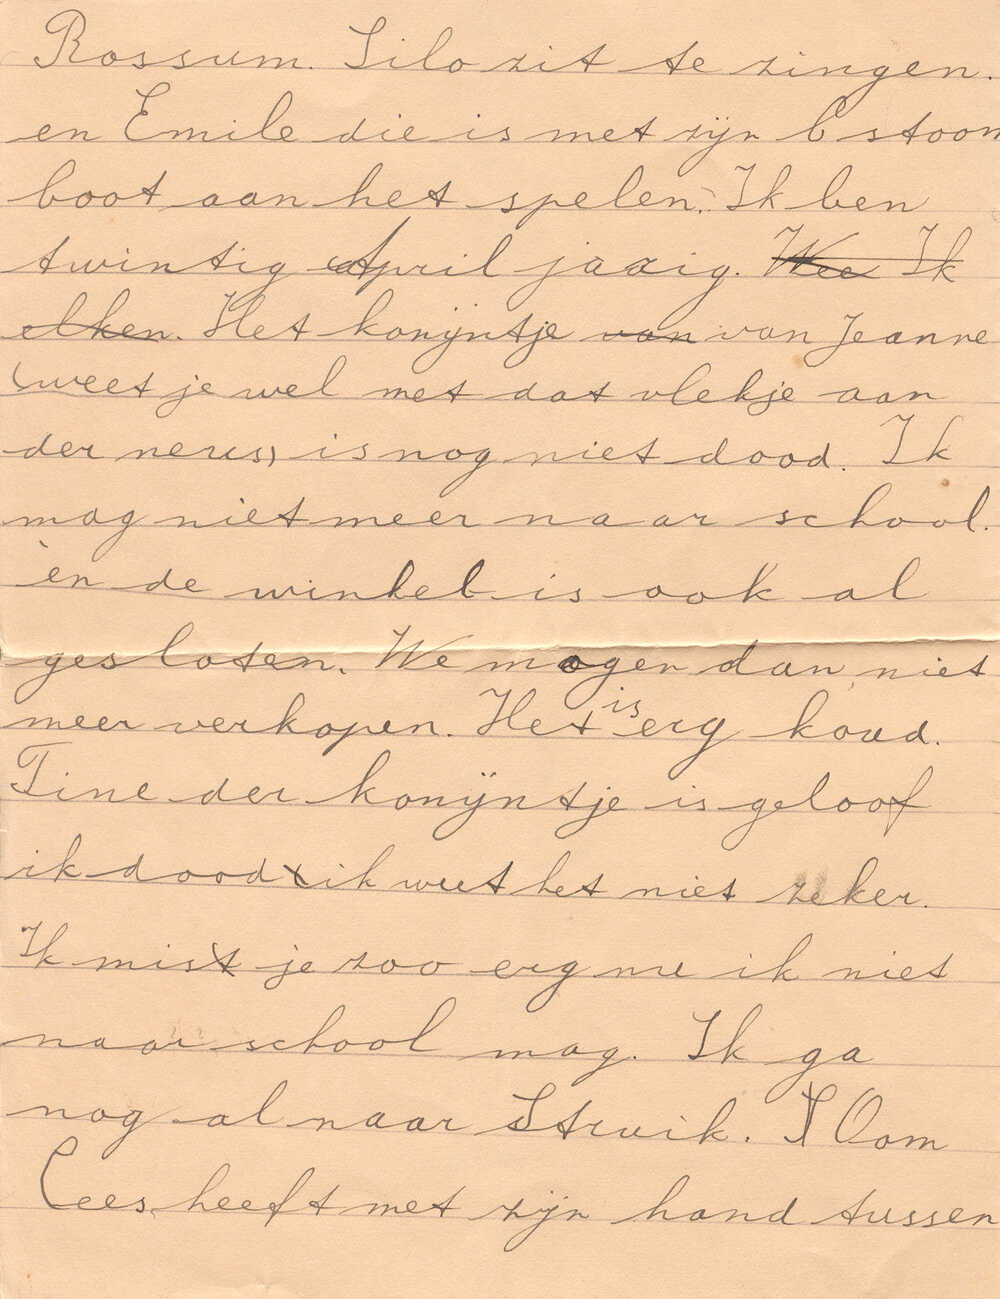 Rossum. Silo zit te zingen.
en Emile die is met zijn b stoom
boot aan het spelen. Ik ben
twintig April jaarig. Wee Ik
elken. Het konijntje van van Jeanne
(weet je wel met dat vlekje aan
der neus) is nog niet dood. Ik
mag niet meer naar school.
èn de winkel is ook al
gesloten. We mogen dan niet
meer verkopen. Het is erg koud.
Tine der konijntje is geloof
ik dood ik weet het niet zeker.
Ik mist je zoo erg nu ik niet
naar school mag. Ik ga
nog al naar Struik. I Oom
Cees heeft met zijn hand tussen